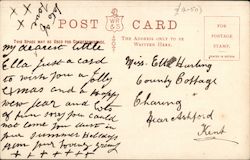 POST CARD
THIS SPACE MAY BE USED FOR COMMUNICATION.
THE ADDRESS ONLY TO BE
WRITTEN HERE.
FOR
POSTAGE
STAMP.
x x x
my dearest little
Ella Just a card
to wish you a Jolly
Xmas and a Happy
new year and lots
of fun sorry you could
not come you must in
your summer holidays
from your loving
x x x x x x
Miss. Ella Harling
County Cottage
Charing
Near Ashford
Kent